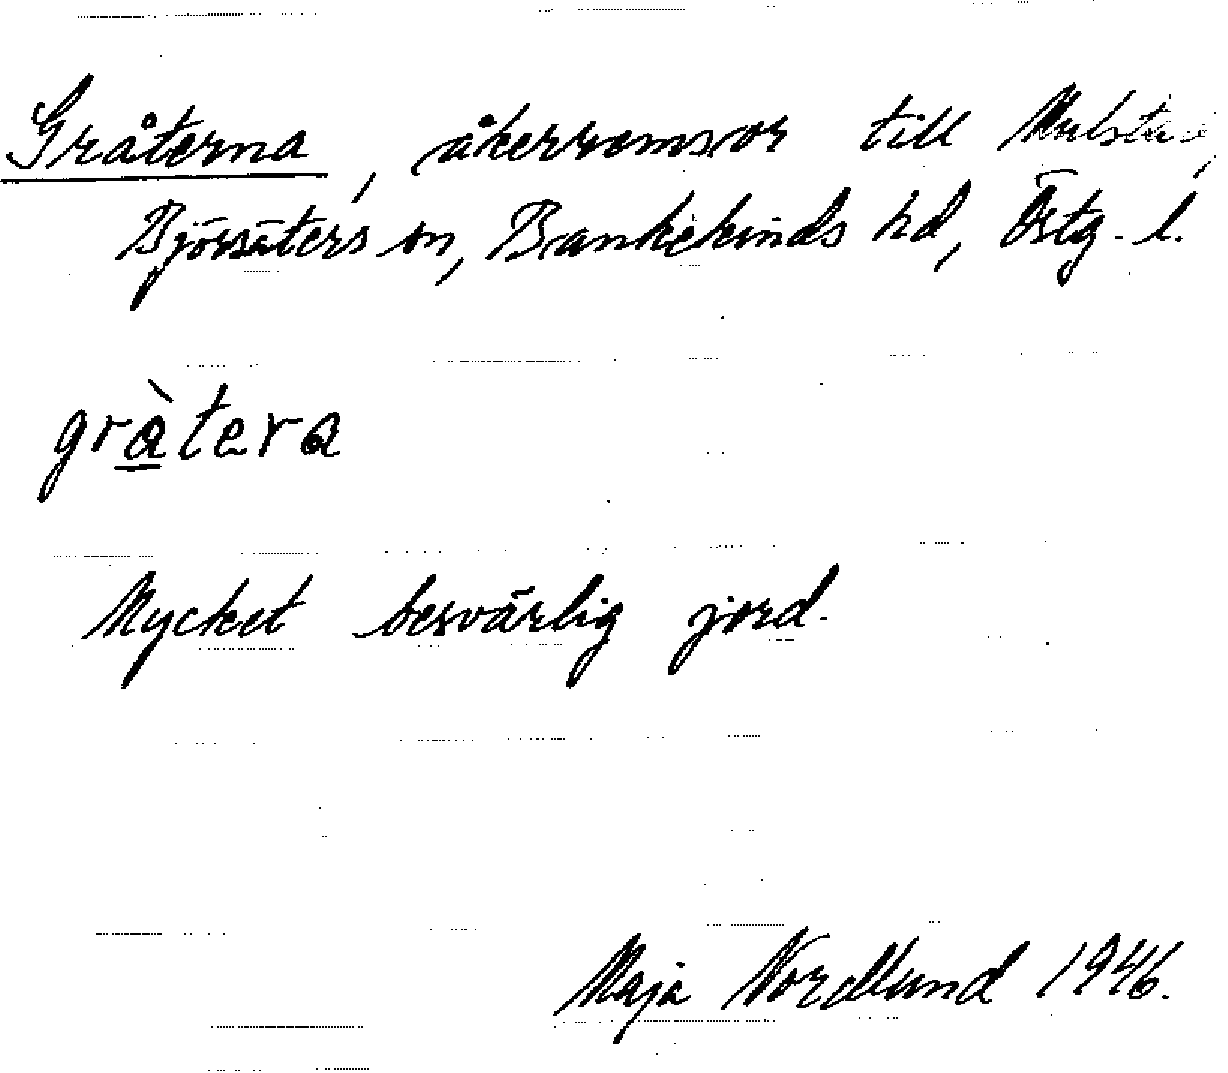 Gråterna, åkerremsor till Mulstad,
Björsäters sn, Bankekinds hd, Östg. l.
gràtera
Mycket besvärlig jord.
Maja Nordlund 1946.